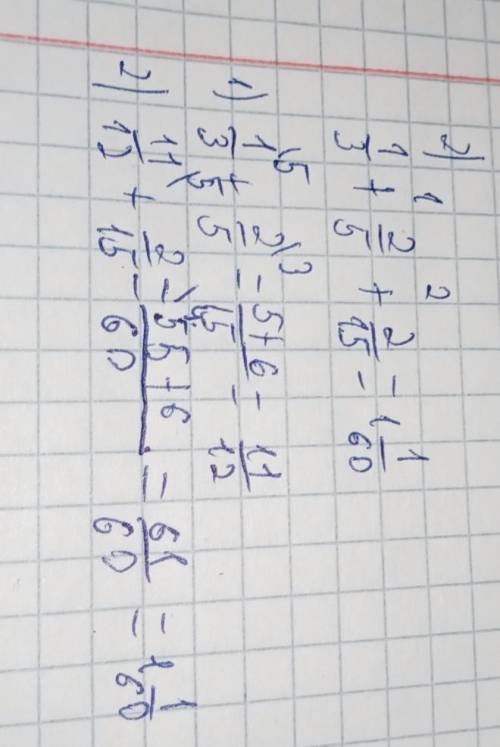 2) 1/3 + 2/5 + 2/15 = 1 1/60
1 2
1) 1/3 \5 + 2/5 \3 = 5+6/15 = 11/12
2) 11/12 \5 + 2/15 \4 = 55+6/60 = 61/60 = 1 1/60